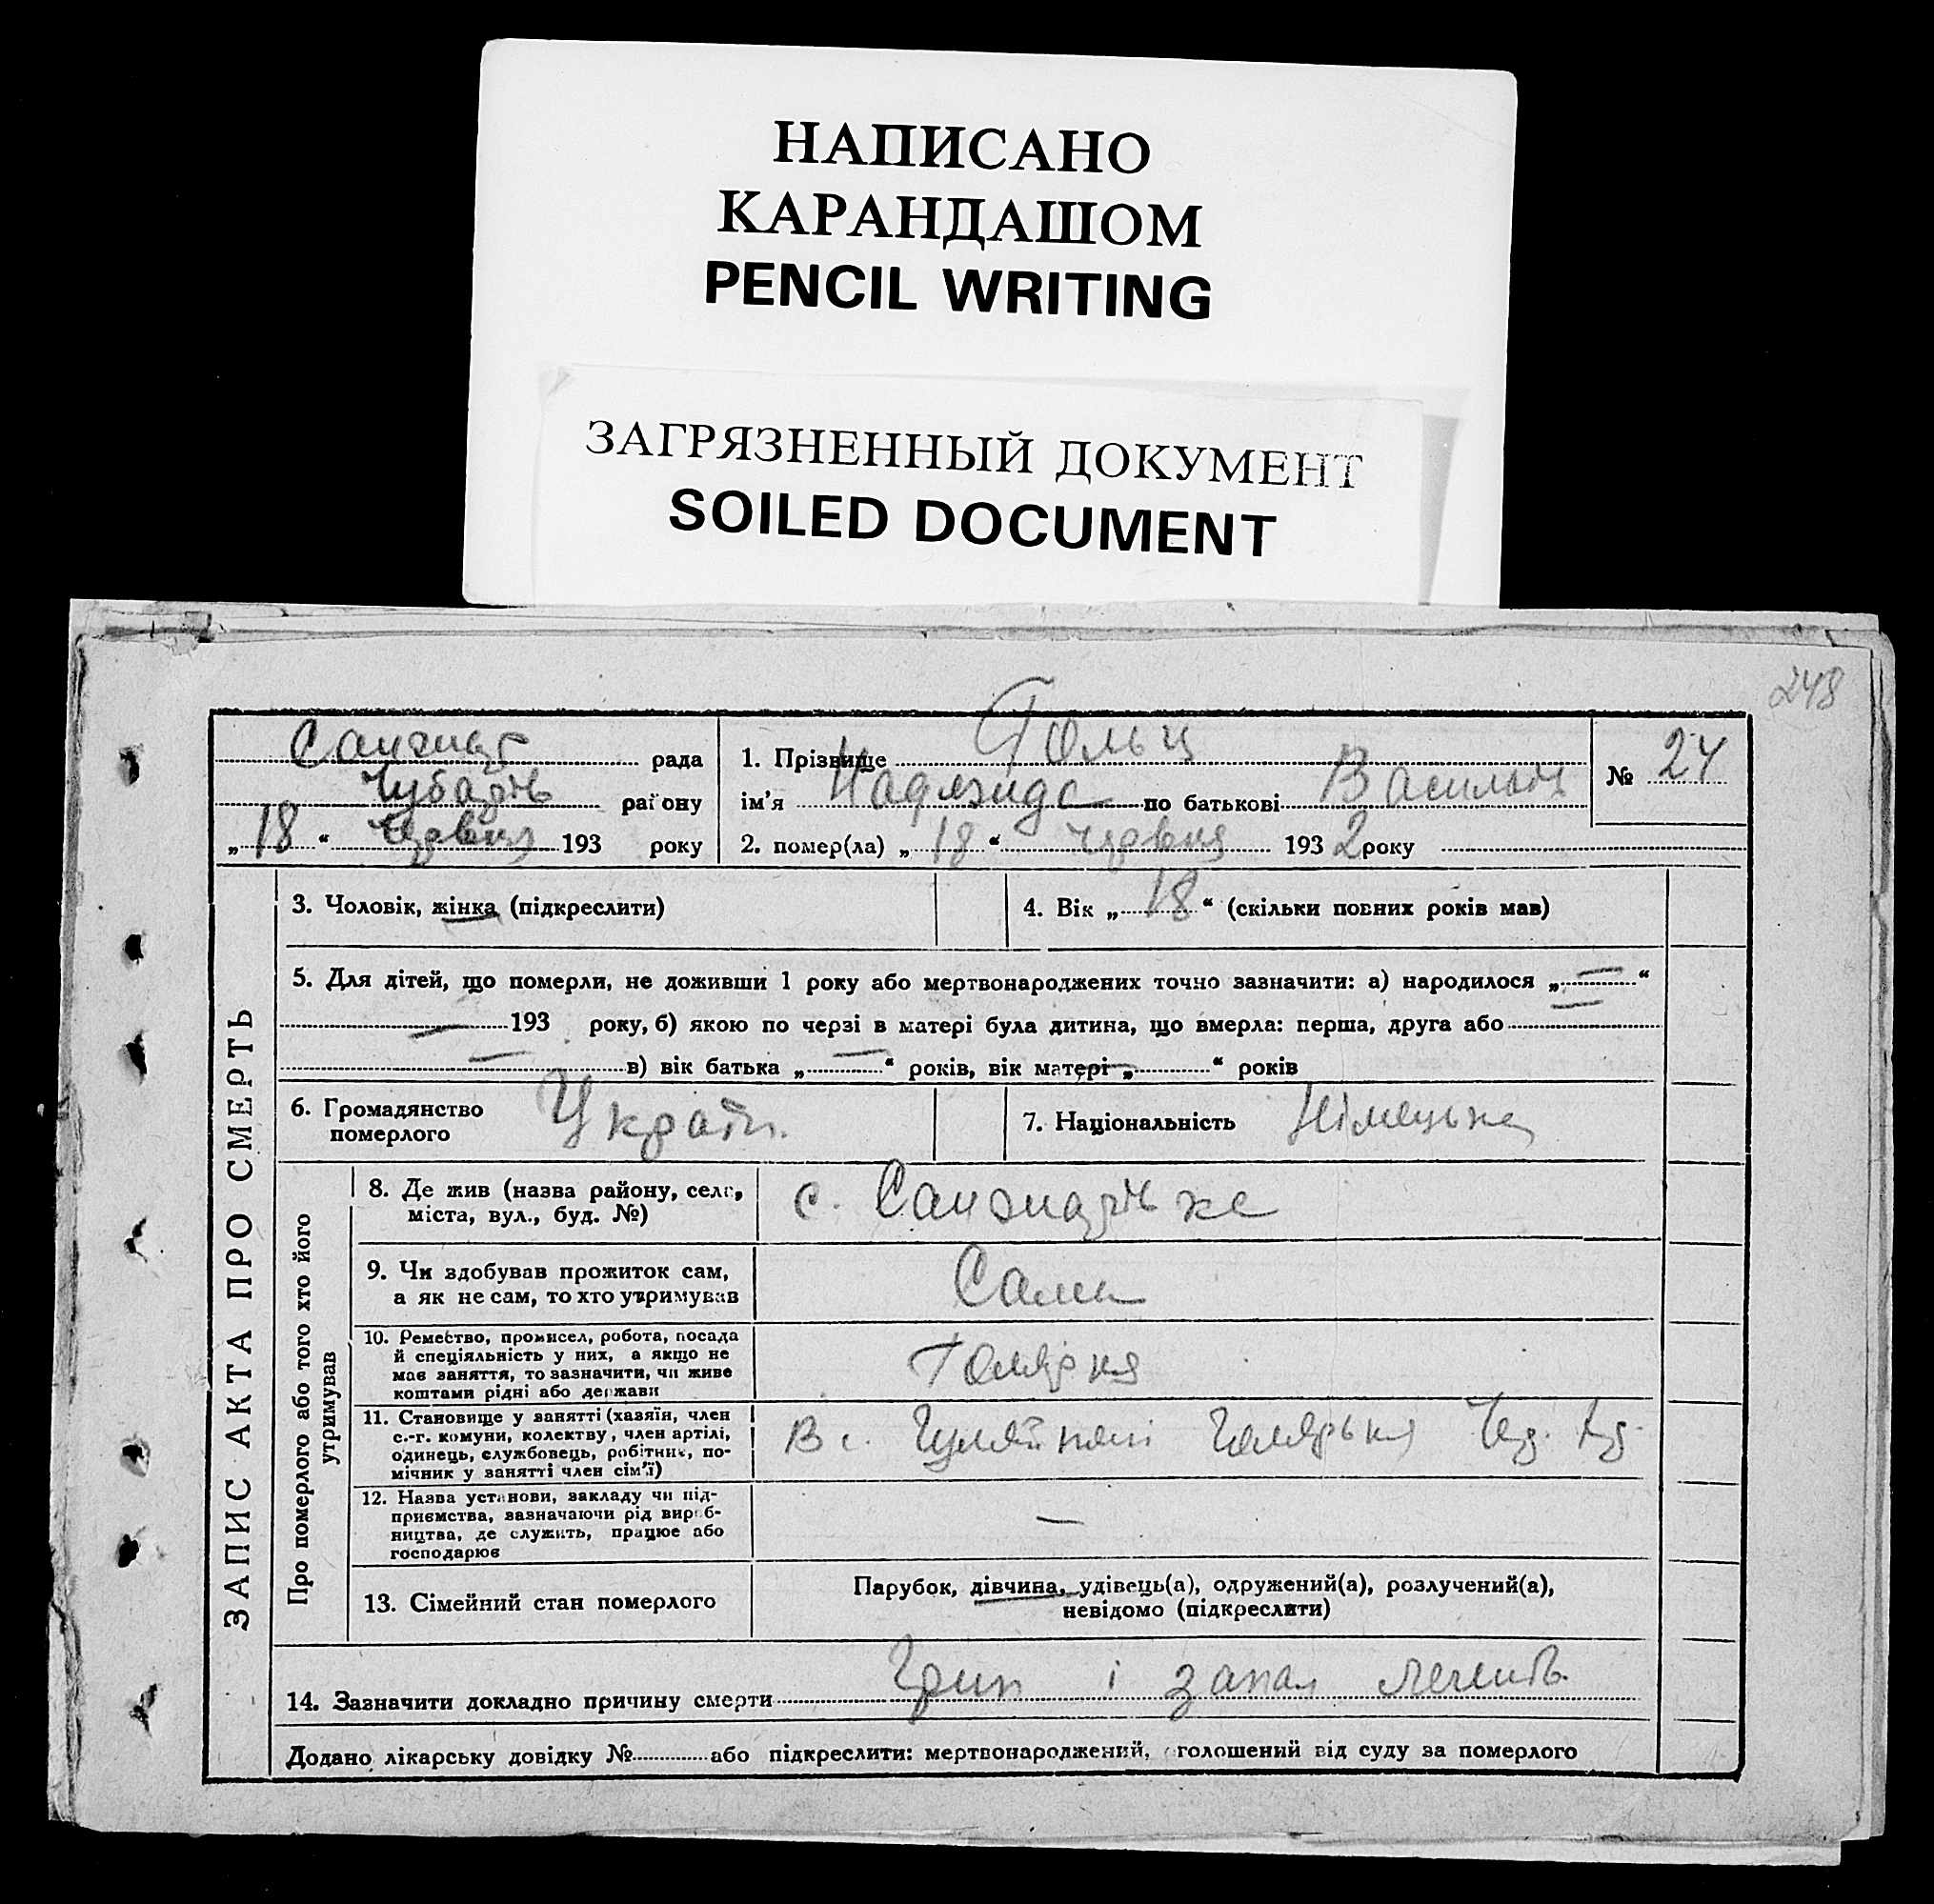 НАПИСАНО
КАРАНДАШОМ
PENCIL WRITING
ЗАГРЯЗНЕННЫЙ ДОКУМЕНТ
SOILED DOCUMENT
248
рада
району
„18“ червня 193 року
1. Прізвище Гольц
ім'я по батькові
№ 24
2. помер(ла) „18“ червня 1932 року
ЗАПИС АКТА ПРО СМЕРТЬ
3. Чоловік, жінка (підкреслити)
4. Вік „18“ (скільки повних років мав)
5. Для дітей, що померли, не доживши 1 року або мертвонароджених точно зазначити: а) народилося „—“
— 193 року, б) якою по черзі в матері була дитина, що вмерла: перша, друга або —
— в) вік батька „—“ років, вік матері „—“ років
6. Громадянство
померлого
Країн.
7. Національність Німецька
Про померлого або того хто його
утримував
8. Де жив (назва району, села,
міста, вул., буд. №)
с.
9. Чи здобував прожиток сам,
а як не сам, то хто утримував
Сама
10. Ремество, промисел, робота, посада
й спеціяльність у них, а якщо не
має заняття, то зазначити, чи живе
коштами рідні або держави
11. Становище у занятті (хазяїн, член
с.-г. комуни, колектву, член артілі,
одинець, службовець, робітник, по-
мічник у занятті член сім'ї)
12. Назва установи, закладу чи під-
приємства, зазначаючи рід вироб-
ництва, де служить, працює або
господарює
—
13. Сімейний стан померлого
Парубок, дівчина, удівець(а), одружений(а), розлучений(а),
невідомо (підкреслити)
14. Зазначити докладно причину смерти Грип і запал легенів
Додано лікарську довідку № або підкреслити: мертвонароджений, оголошений від суду за померлого